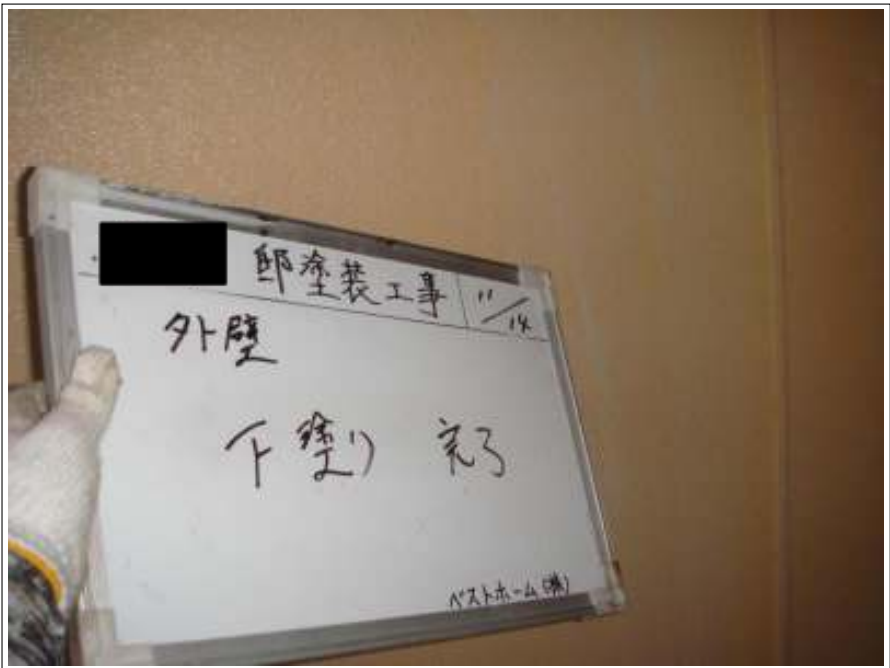 邸塗装工事 11/14
外壁
下塗り 完了
ベストホーム(株)